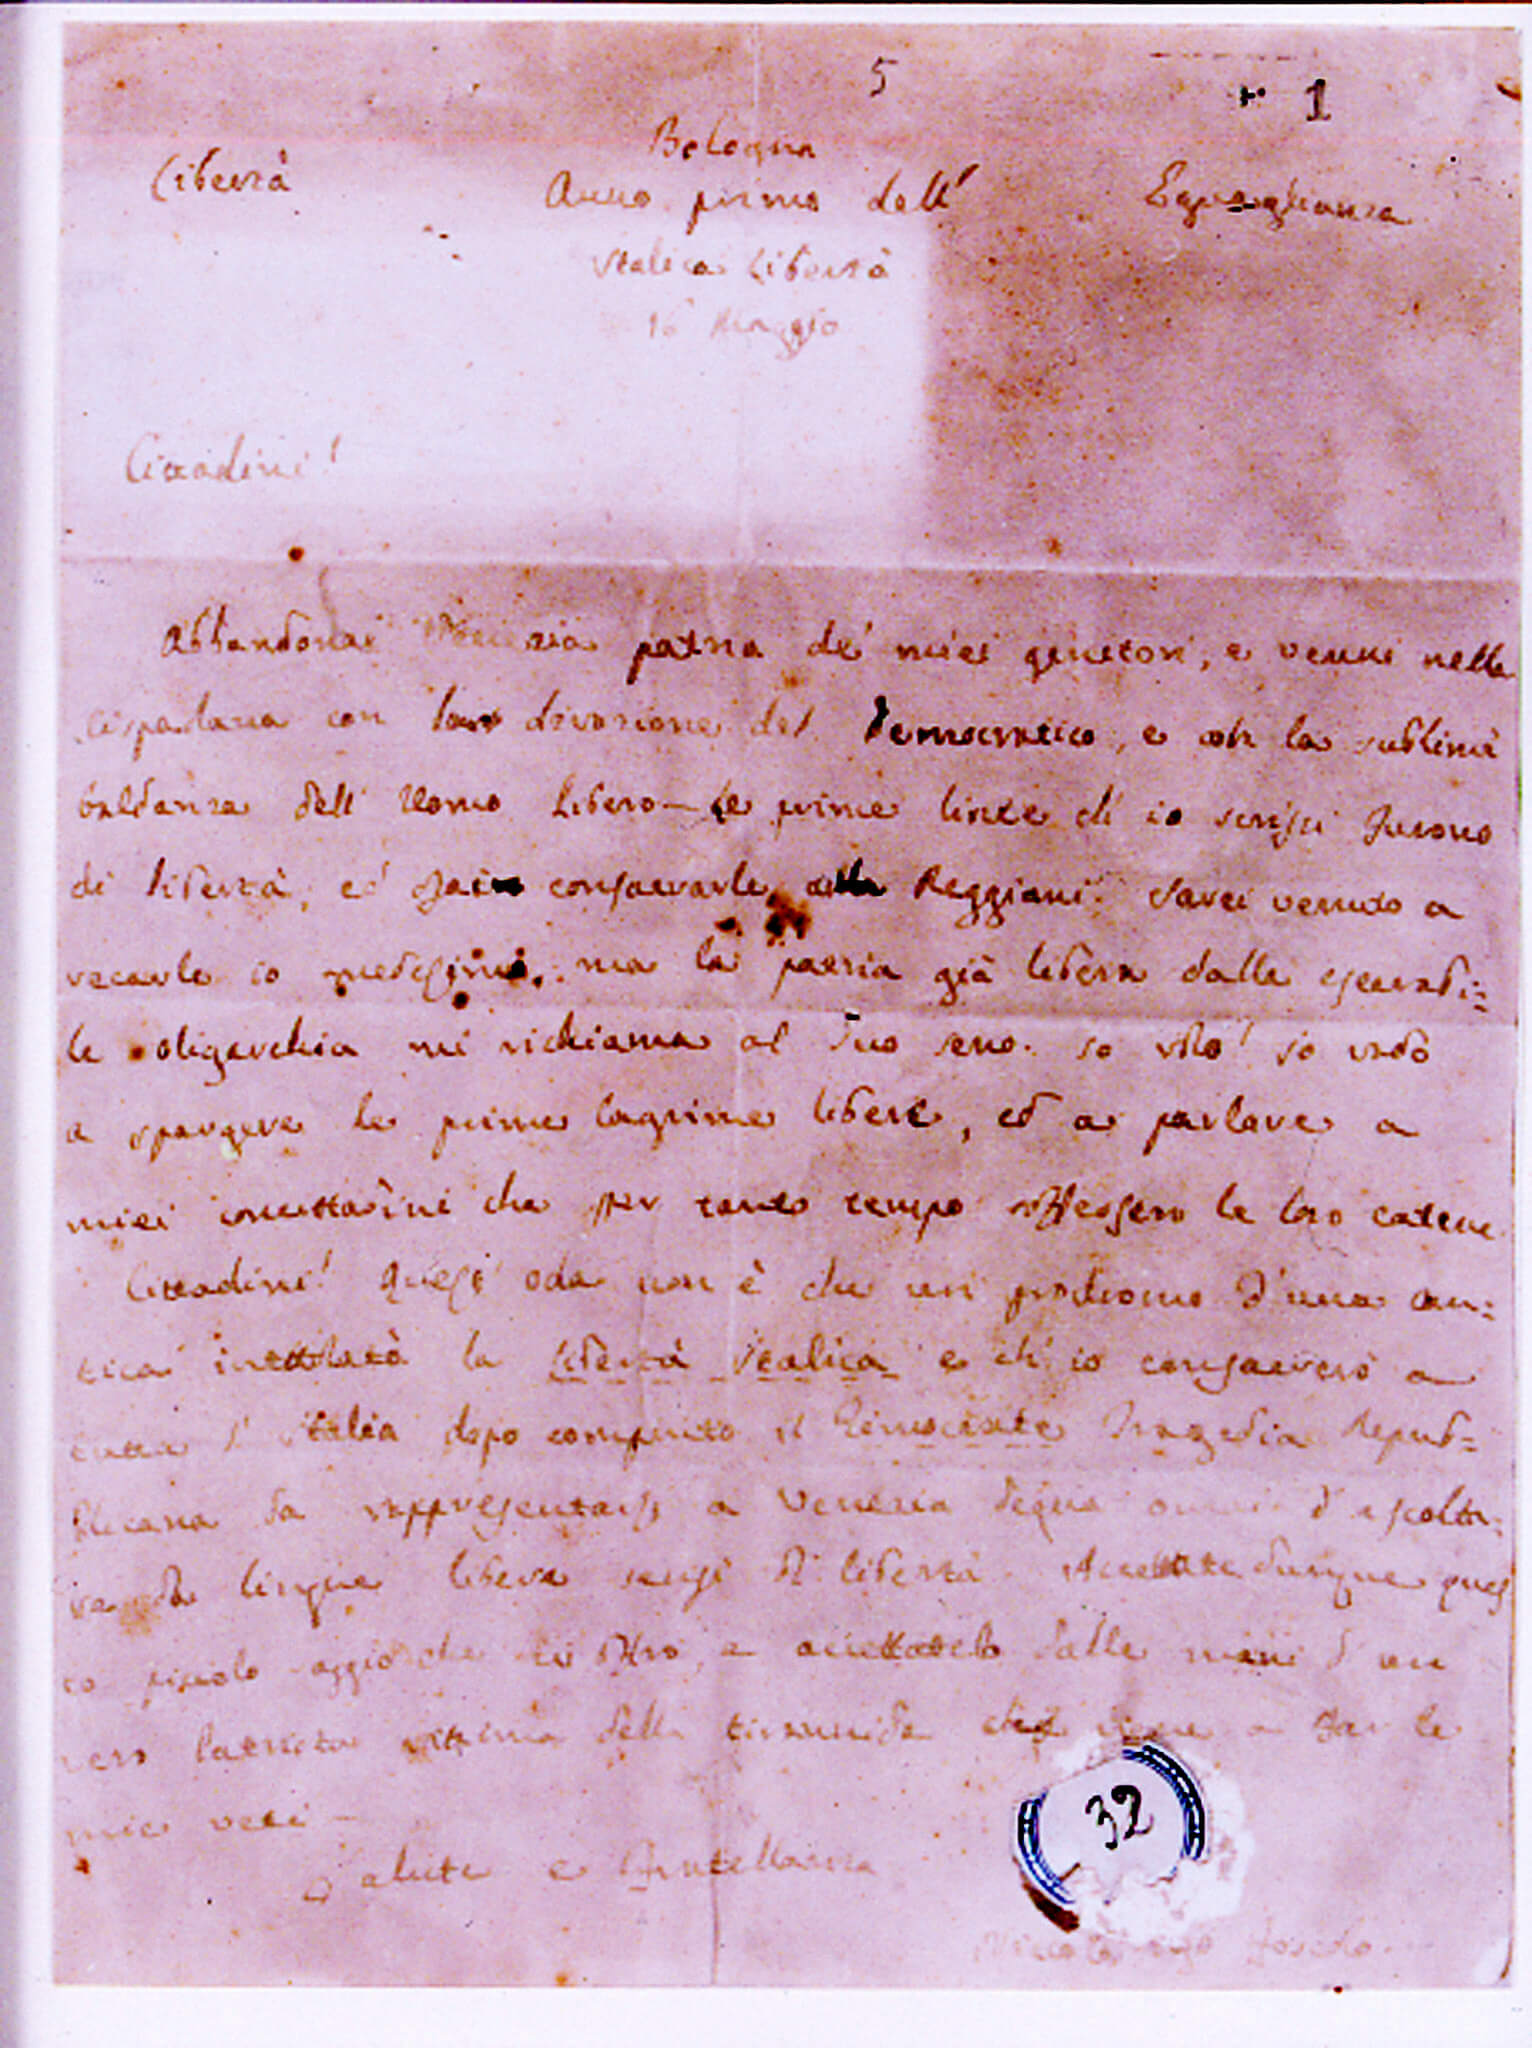 5
1
Bologna
Libertà Anno primo dell' Eguaglianza
Italica Libertà
16 Maggio
Cittadini!
Abbandonai Venezia patria de' miei genitori, e venni nella
Cispadana con divozione del Democratico, e con la sublime
baldanza dell' Uomo Libero – Le prime linee ch' io scrissi furono
di libertà, ed consacrarle Reggiani. Sarei venuto a
recarle io medesimo. ma la patria già libera dalla esecrabi=
le oligarchia mi richiama al suo seno. Io volo! Io vado
a spargere le prime lagrime libere, ed a parlare a
miei concittadini che per tanto tempo le loro catene.
Cittadini! Quest' oda non è che un prodromo d'una can=
tica intitolata la Libertà Italica e ch' io consacrerò a
tutta l' Italia dopo compiuto il Timocrate Tragedia Repub=
blicana da rappresentarsi a Venezia degna omai d' ascolta=
re da lingua libera sensi di libertà. Accettate dunque ques
to piccolo che vi offro, e accettatelo dalle mani d' un
vero Patriota vittima della tirannide che viene a far le
mie veci –
Salute e Fratellanza
32
Niccolò Ugo Foscolo